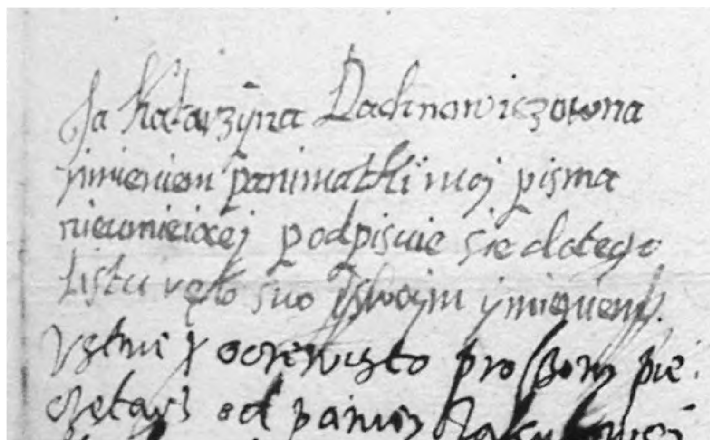 Ja Katarzyna Dachnowiczowna
ymieniem panimatki moj pisma
nieumieiącej podpisuie sie do tego
listu ręką swo y swoim ymieniem.
Vstnie y oczewisto proszony pie
czętarz od paniey